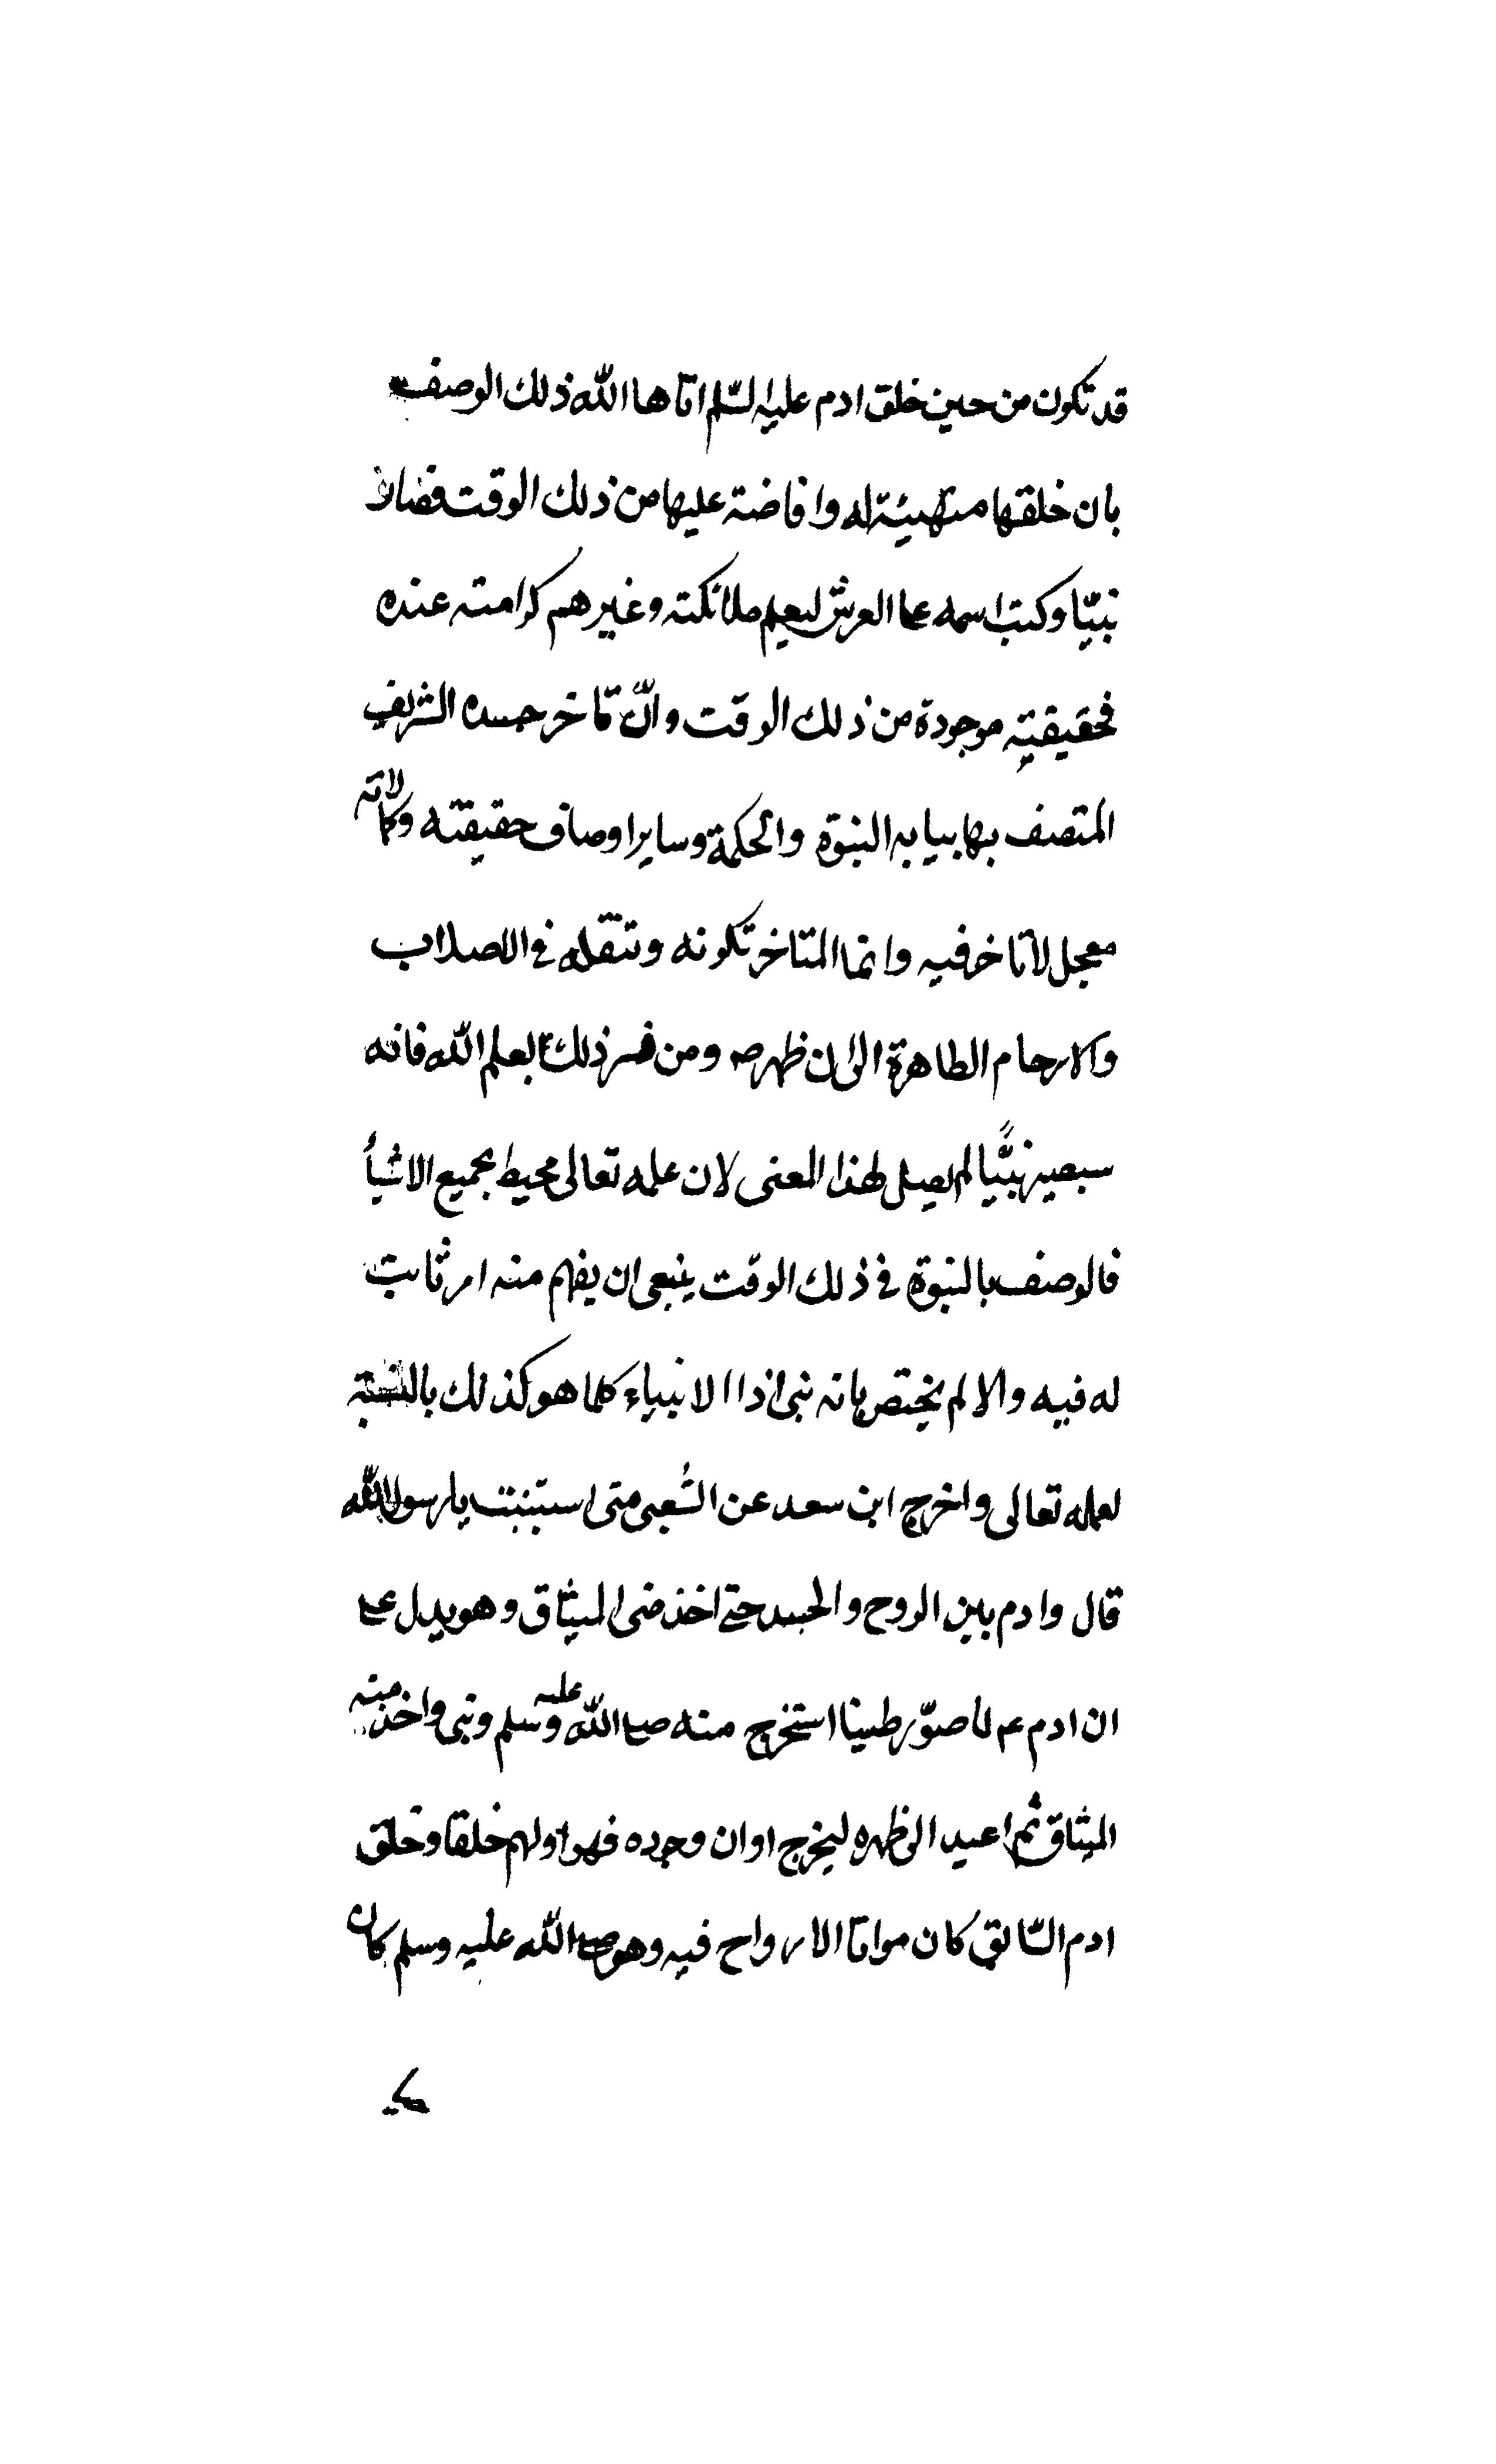 قد تكون من حين خلق ادم عليه السّلم اتاها الله ذلك الوصف
بان خلقها متهيئة له وافاضة عليها من ذلك الوقت فصار
نبيّا وكتب اسمه على العرش ليعلم ملائكته وغيرهم كرامته عنده
فحقيقيته موجودة من ذلك الوقت وانّ تأخر جسده الشريف
المتصف بها بيا به النبوّة والحكمة وساير اوصاف حقيقته وكمالاته
معجل لا تاخر فيه وانما المتاخر تكونه وتنقله في الاصلاب
والارحام الطاهرة الى ان ظهر صم ومن فسر ذلك بعلم الله فانه
سيصير نبيًّا لم يصل لهذا المعنى لان علمه تعالى محيط بجميع الاشيأ
فالوصف بالنبوّة في ذلك الوقت ينبغى ان يفهم منه امر ثابت
له فيه والا لم يختص بانه نبى اذا الانبياء كلما هو كذلك بالنسبة
لعلمه تعالى واخرج ابن سعد عن الشعبى متى استنبت يا رسول الله
قال وادم بين الروح والجسد حتى اخذ منى الميثاق وهو يدل على
ان ادم عم لما صوّر طينا استخرج منه صلى الله عليه وسلم ونبى واخذ منه
الميثاق ثم اعيد الى ظهره ليخرج اوان وجوده فهو اولهم خلقا وخلق
ادم السّابق كان مواتا الارواح فيه وهو صلى الله عليه وسلم كان